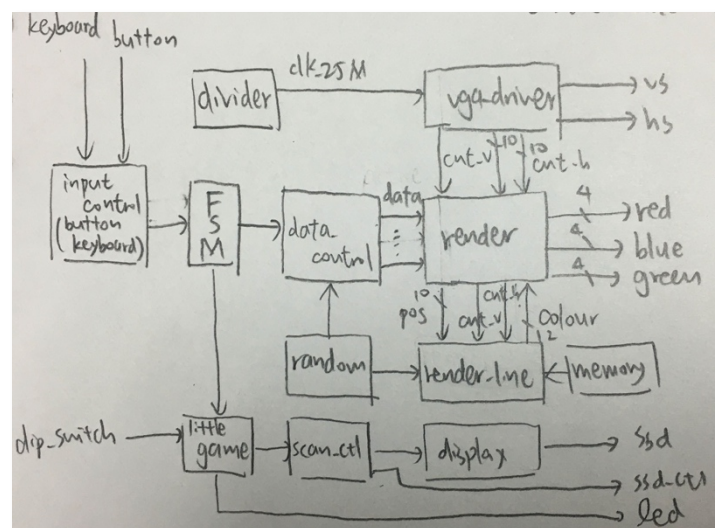 keyboard button
clk_25M
divider
vga-driver
vs
hs
cnt-v
10
10
cnt-h
input
control
(button
keyboard)
FSM
data_
control
data
render
4
red
4
blue
4
green
10
pos
cnt-v
cnt-h
colour
12
random
render-line
memory
dip_switch
little
game
scan_ctl
display
ssd
ssd-ctl
led